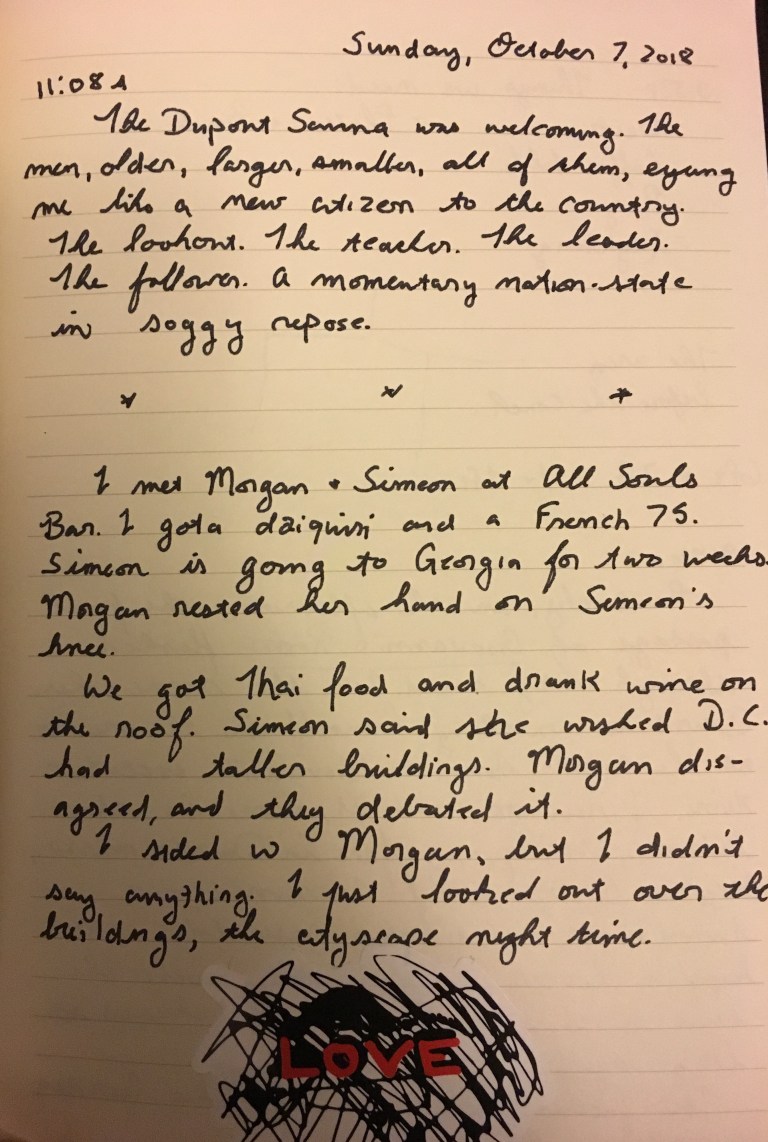 Sunday, October 7, 2018
11:08 A
The Dupont Sauna was welcoming. The
men, older, larger, smaller, all of them, eyeing
me like a new citizen to the country.
The lookout. The teacher. The leader.
The follower. A momentary nation-state
in soggy repose.
* * *
I met Morgan + Simeon at All Souls
Bar. I got a daiquiri and a French 75.
Simeon is going to Georgia for two weeks.
Morgan rested her hand on Simeon's
knee.
We got Thai food and drank wine on
the roof. Simeon said she wished D.C.
had taller buildings. Morgan dis-
agreed, and they debated it.
I sided w Morgan, but I didn't
say anything. I just looked out over the
buildings, the cityscape night time.
LOVE